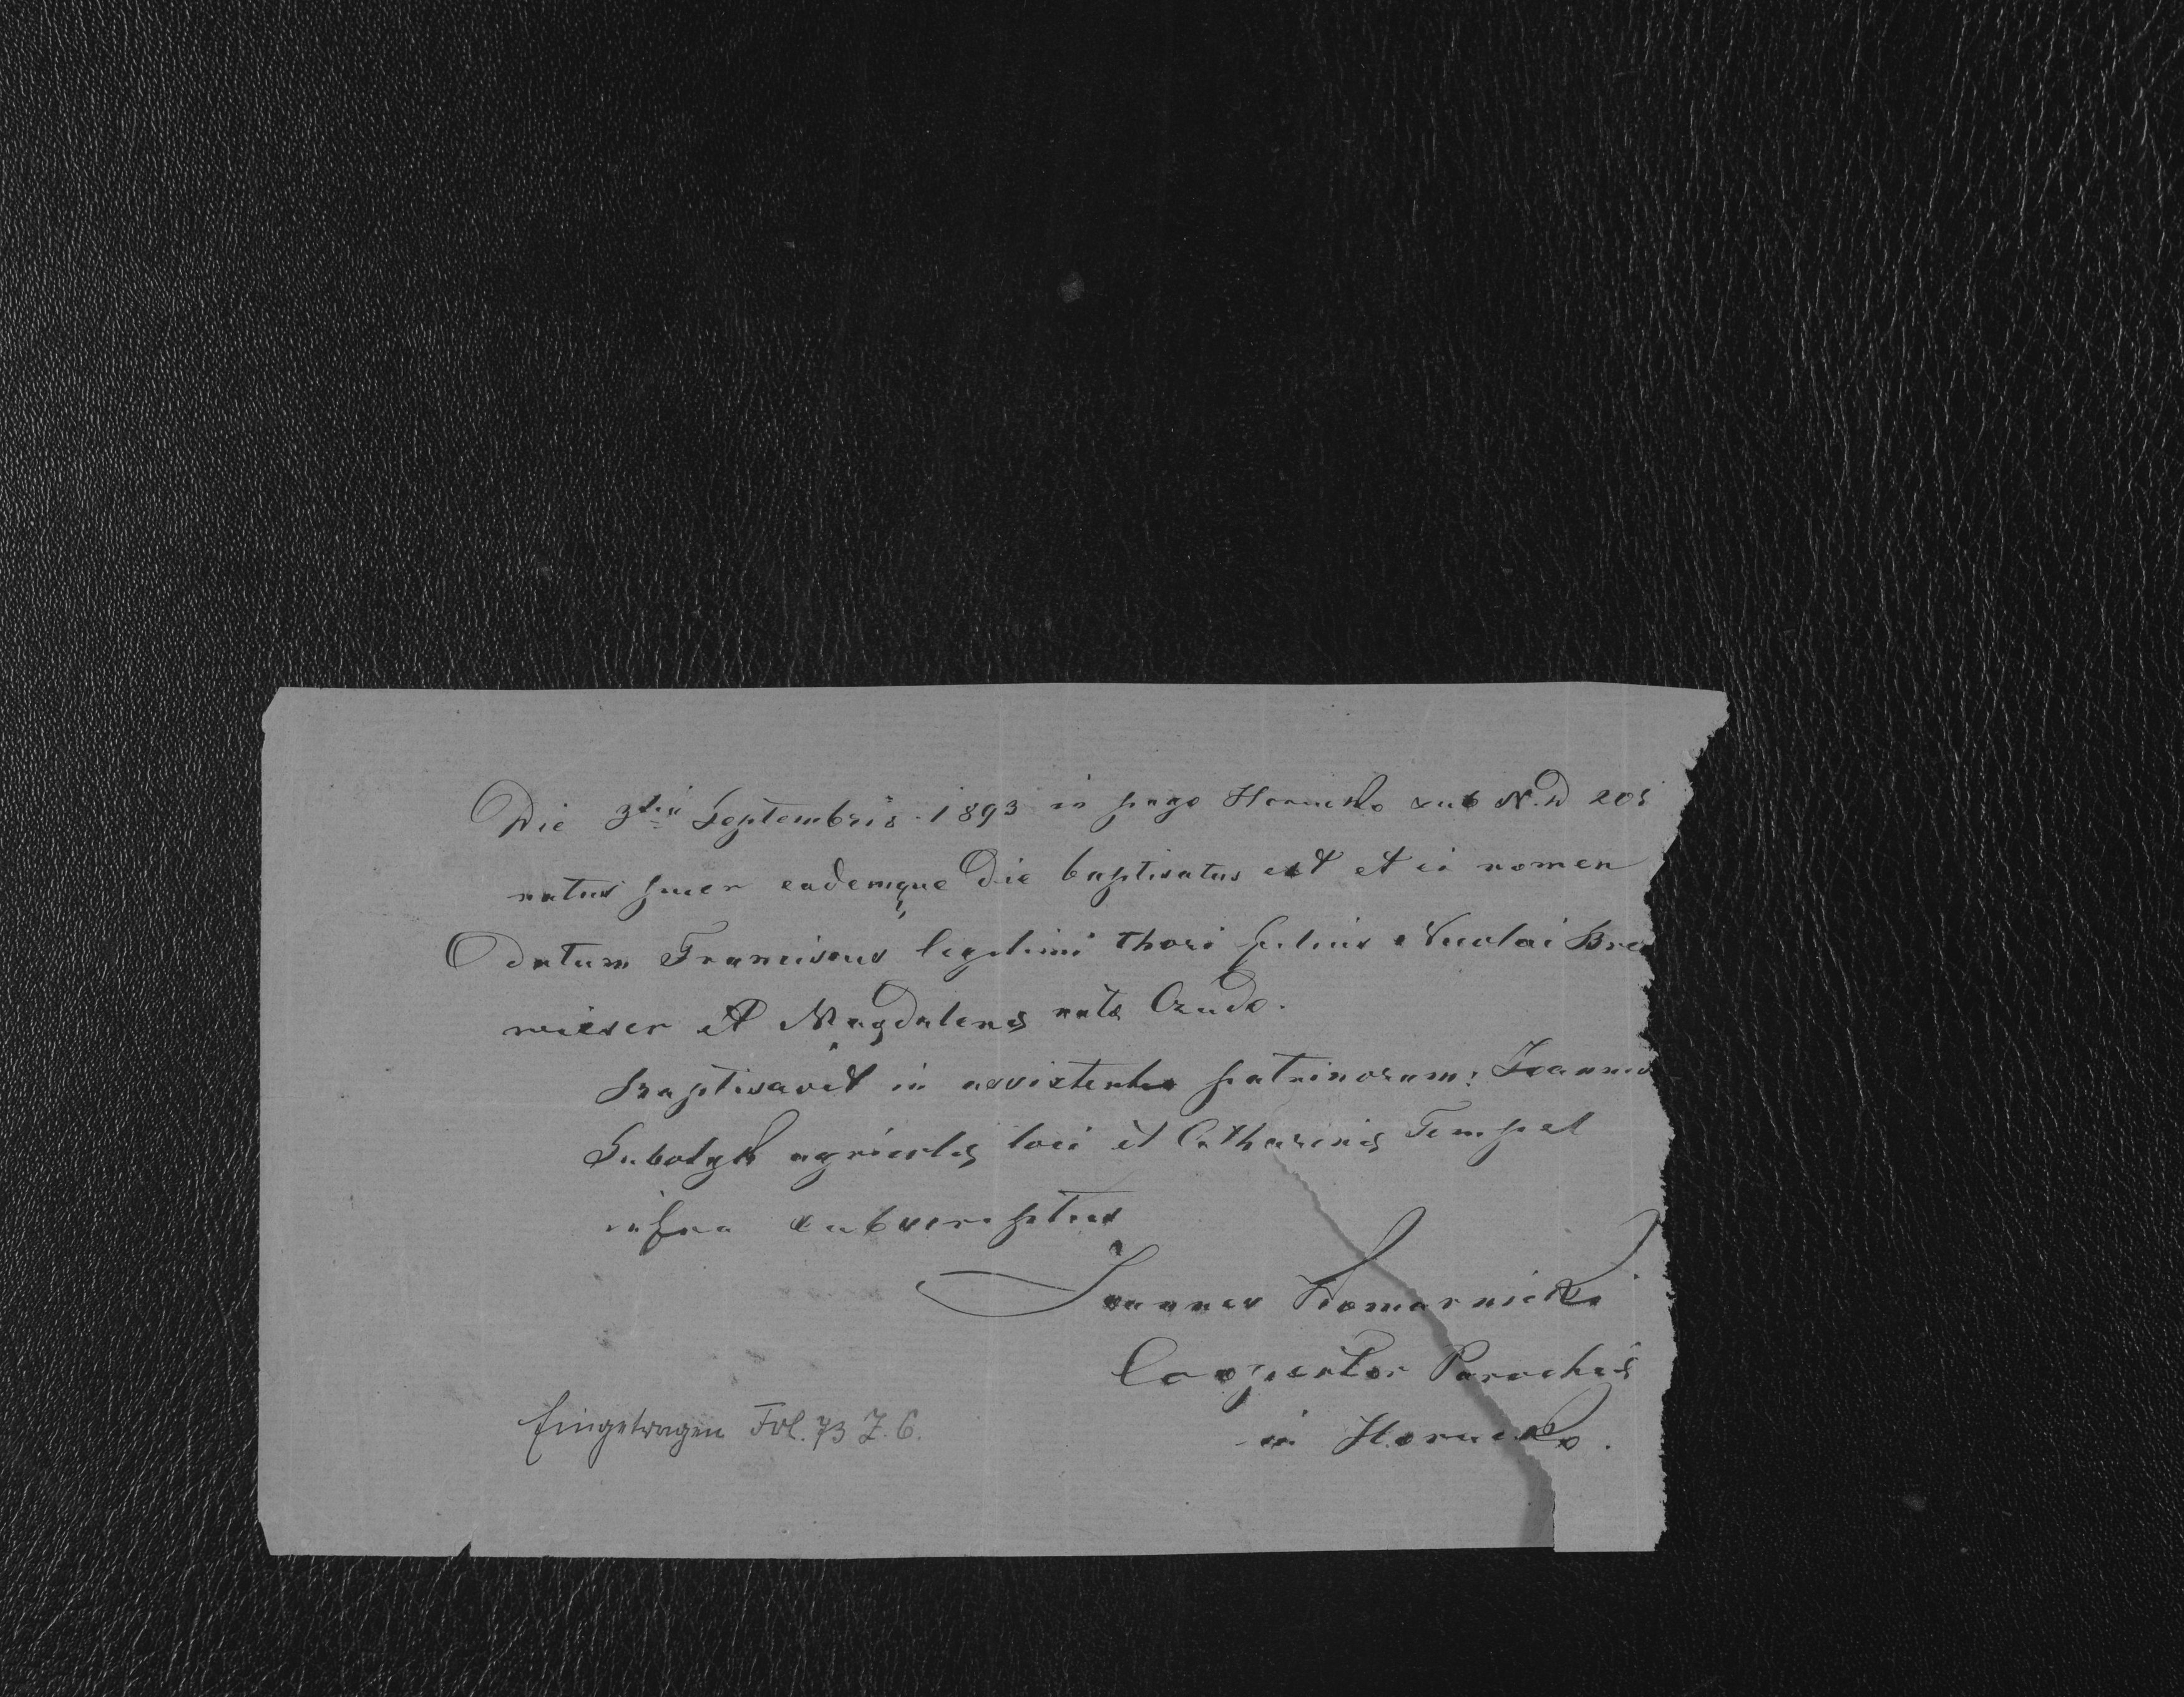 Die 3tia Septembris 1893 in pago Horucko sub N.D 205
natus puer eademque die baptisatus est et ei nomen
datum Franciscus legitimi thori filius Nicolai Bre
wieser et Magdalenę natę Czuda.
Baptisavit in assistentia patrinorum: Joannes
Subotyk agricolę loci et Catharinę Tempel
infra subscriptus
Joannes Komarnicki
Cooperator Parochus
in Horucko.
Eingetragen Fol. 73 Z. 6.